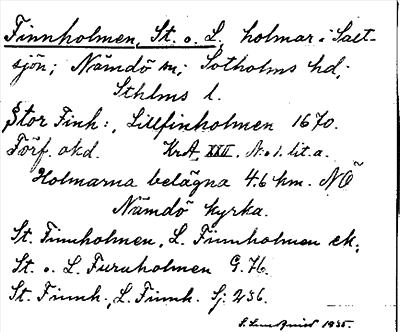 Finnholmen, St. o. L, holmar i Salt-
sjön; Nämdö sn; Sotholms hd;
Sthlms l.
Stor Finh:, Lillfinholmen 1670.
Förf. okd. KrA XXII. N:o 1. lit. a.
Holmarna belägna 4.6 km. NÖ
Nämdö kyrka.
St. Finnholmen, L. Finnholmen ek;
St. o. L. Furuholmen G. 76.
St. Finnh., L. Finnh. Sj: 236.
1935.